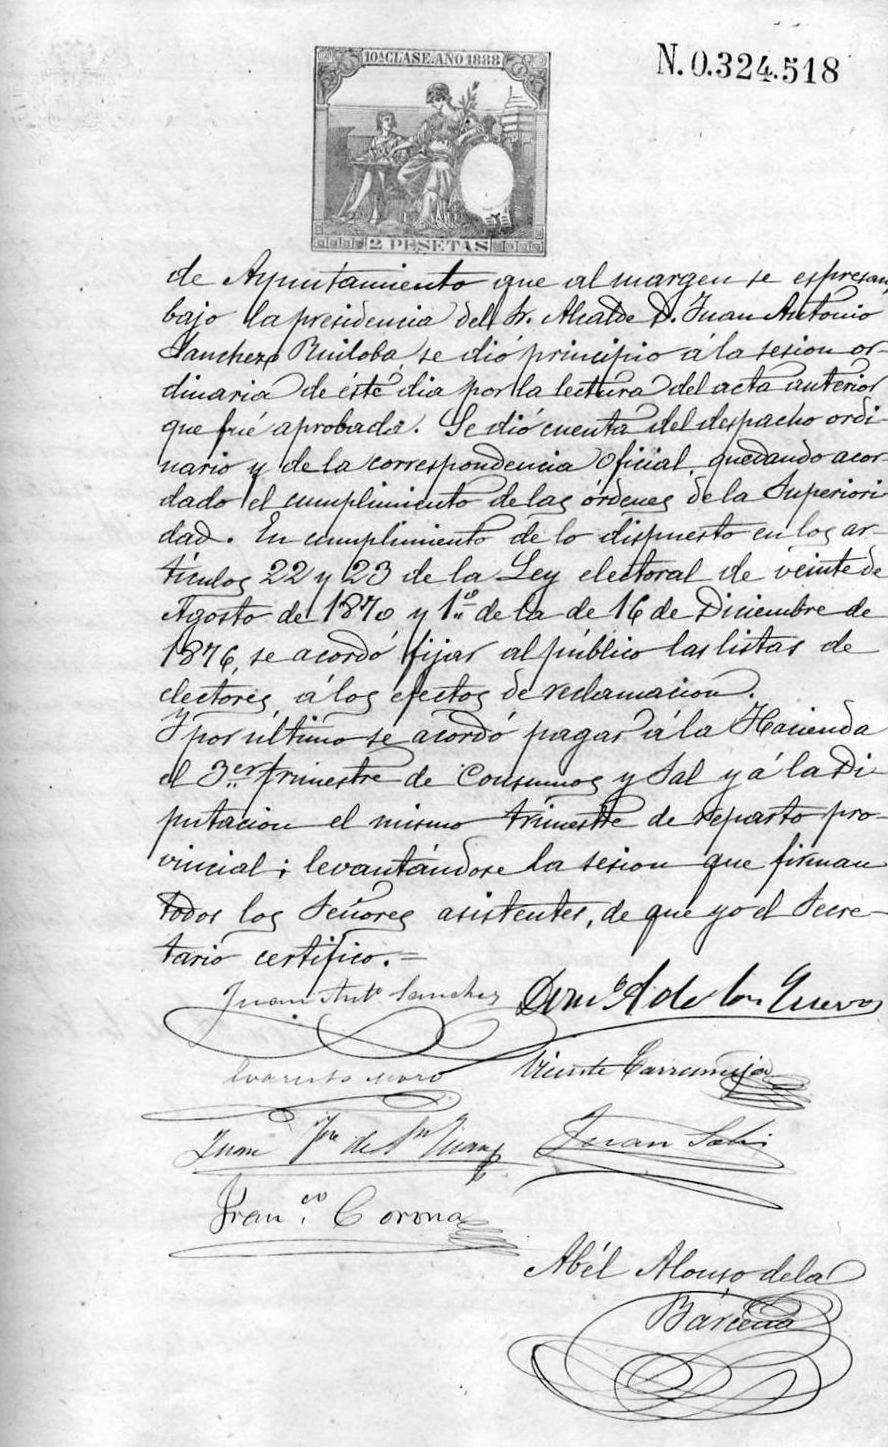 10ª CLASE. AÑO 1888
N. 0.324.518
2 PESETAS
de Ayuntamiento que al margen se espresan,
bajo la presidencia del Sr. Alcalde D. Juan Antonio
Sanchez Ruiloba, se dió principio á la sesion or-
dinaria de éste dia por la lectura del acta anterior
que fué aprobada. Se dió cuenta del despacho ordi-
nario y de la correspondencia oficial, quedando acor-
dado el cumplimiento de las órdenes de la Superiori
dad. En cumplimiento de lo dispuesto en los ar-
tículos 22 y 23 de la Ley electoral de veinte de
Agosto de 1870 y 1º de la de 16 de Diciembre de
1876, se acordó fijar al público las listas de
electores, á los efectos de reclamacion.
Y por último se acordó pagar á la Hacienda
el 3er trimestre de Consumos y Sal y á la Di
putacion el mismo trimestre de reparto pro-
vincial; levantándose la sesion que firman
todos los Señores asistentes, de que yo el Secre-
tario certifico.=
Juan Antº Sanchez
de los Cuevas
Evaristo Moro
Vicente
Juan de
Juan
Franco. Corona
Abél Alonso de la
Bárcena